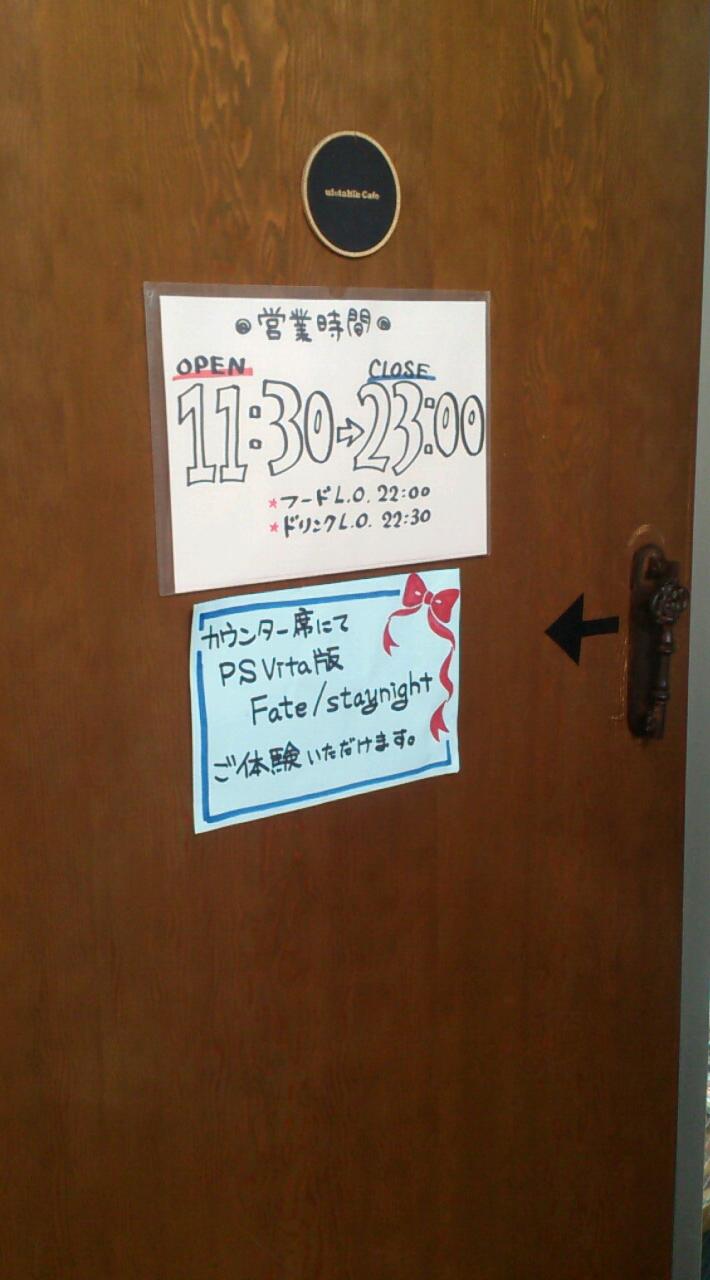 ufotable Cafe
◎営業時間◎
OPEN CLOSE
11:30⇨23:00
*フードL.O. 22:00
*ドリンクL.O. 22:30
カウンター席にて
PS Vita版
Fate/staynight
ご体験いただけます。